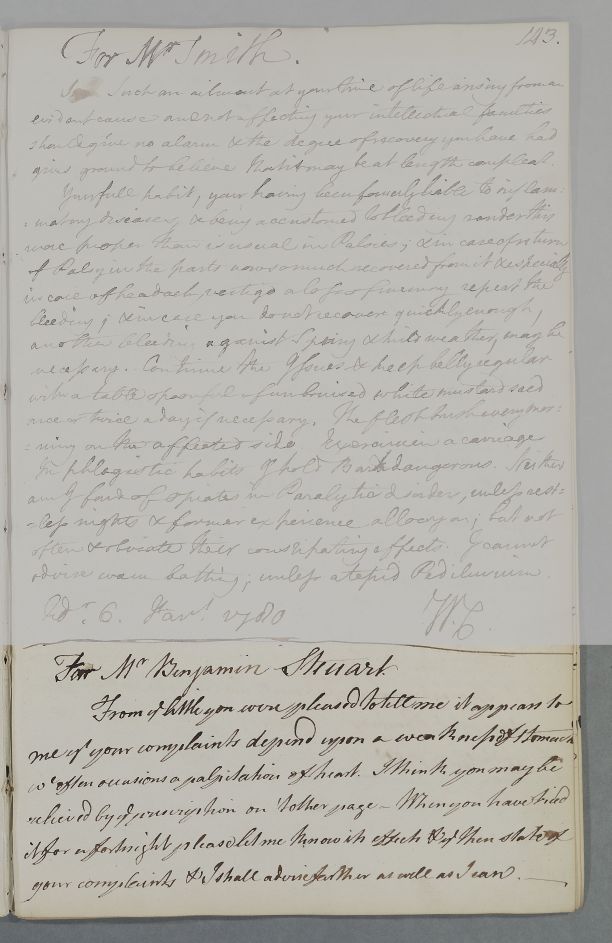 143.
For Mr Smith.
Sr Such an ailment at your time of life arising from an
evident cause and not affecting your intellectual faculties
should give no alarm & the degree of recovery you have had
gives ground to believe that it may be at length compleat.
Your full habit, your having been formerly liable to inflam:
:matory diseases, & being accustomed to bleeding renders this
more proper than is usual in Palsies; & in case of return
of Palsy in the parts now so much recovered from it & especially
in case of headach, vertigo a loss of memory repeat the
bleeding; & in case you do not recover quickly enough,
another bleeding against Spring & mild weather, may be
necessary. Continue the Issues & keep belly regular
with a table spoonful of unbruised white mustard seed
once or twice a day if necessary. The flesh brush every mor:
:ning on the affected side Exercise in a carriage
In phlogistic habits I hold Bark dangerous. Neither
am I fond of opiates in Paralytic disorders, unless rest:
:less nights & former experience allow you; but not
often & obviate their constipating effects. I cannot
advise warm bathing; unless a tepid Pediluvium.
Edr. 6. Janry. 1780 W.C.
For Mr Benjamin Steuart
From ye little you were pleased to tell me it appears to
me yt your complaints depend upon a weakness of stomach
wc often occasions a palpitation of heart. I think you may be
relieved by ye prescription on 'tother page – When you have tried
it for a fortnight please let me know its effects & ye then state of
your complaints & I shall advise farther as well as I can.